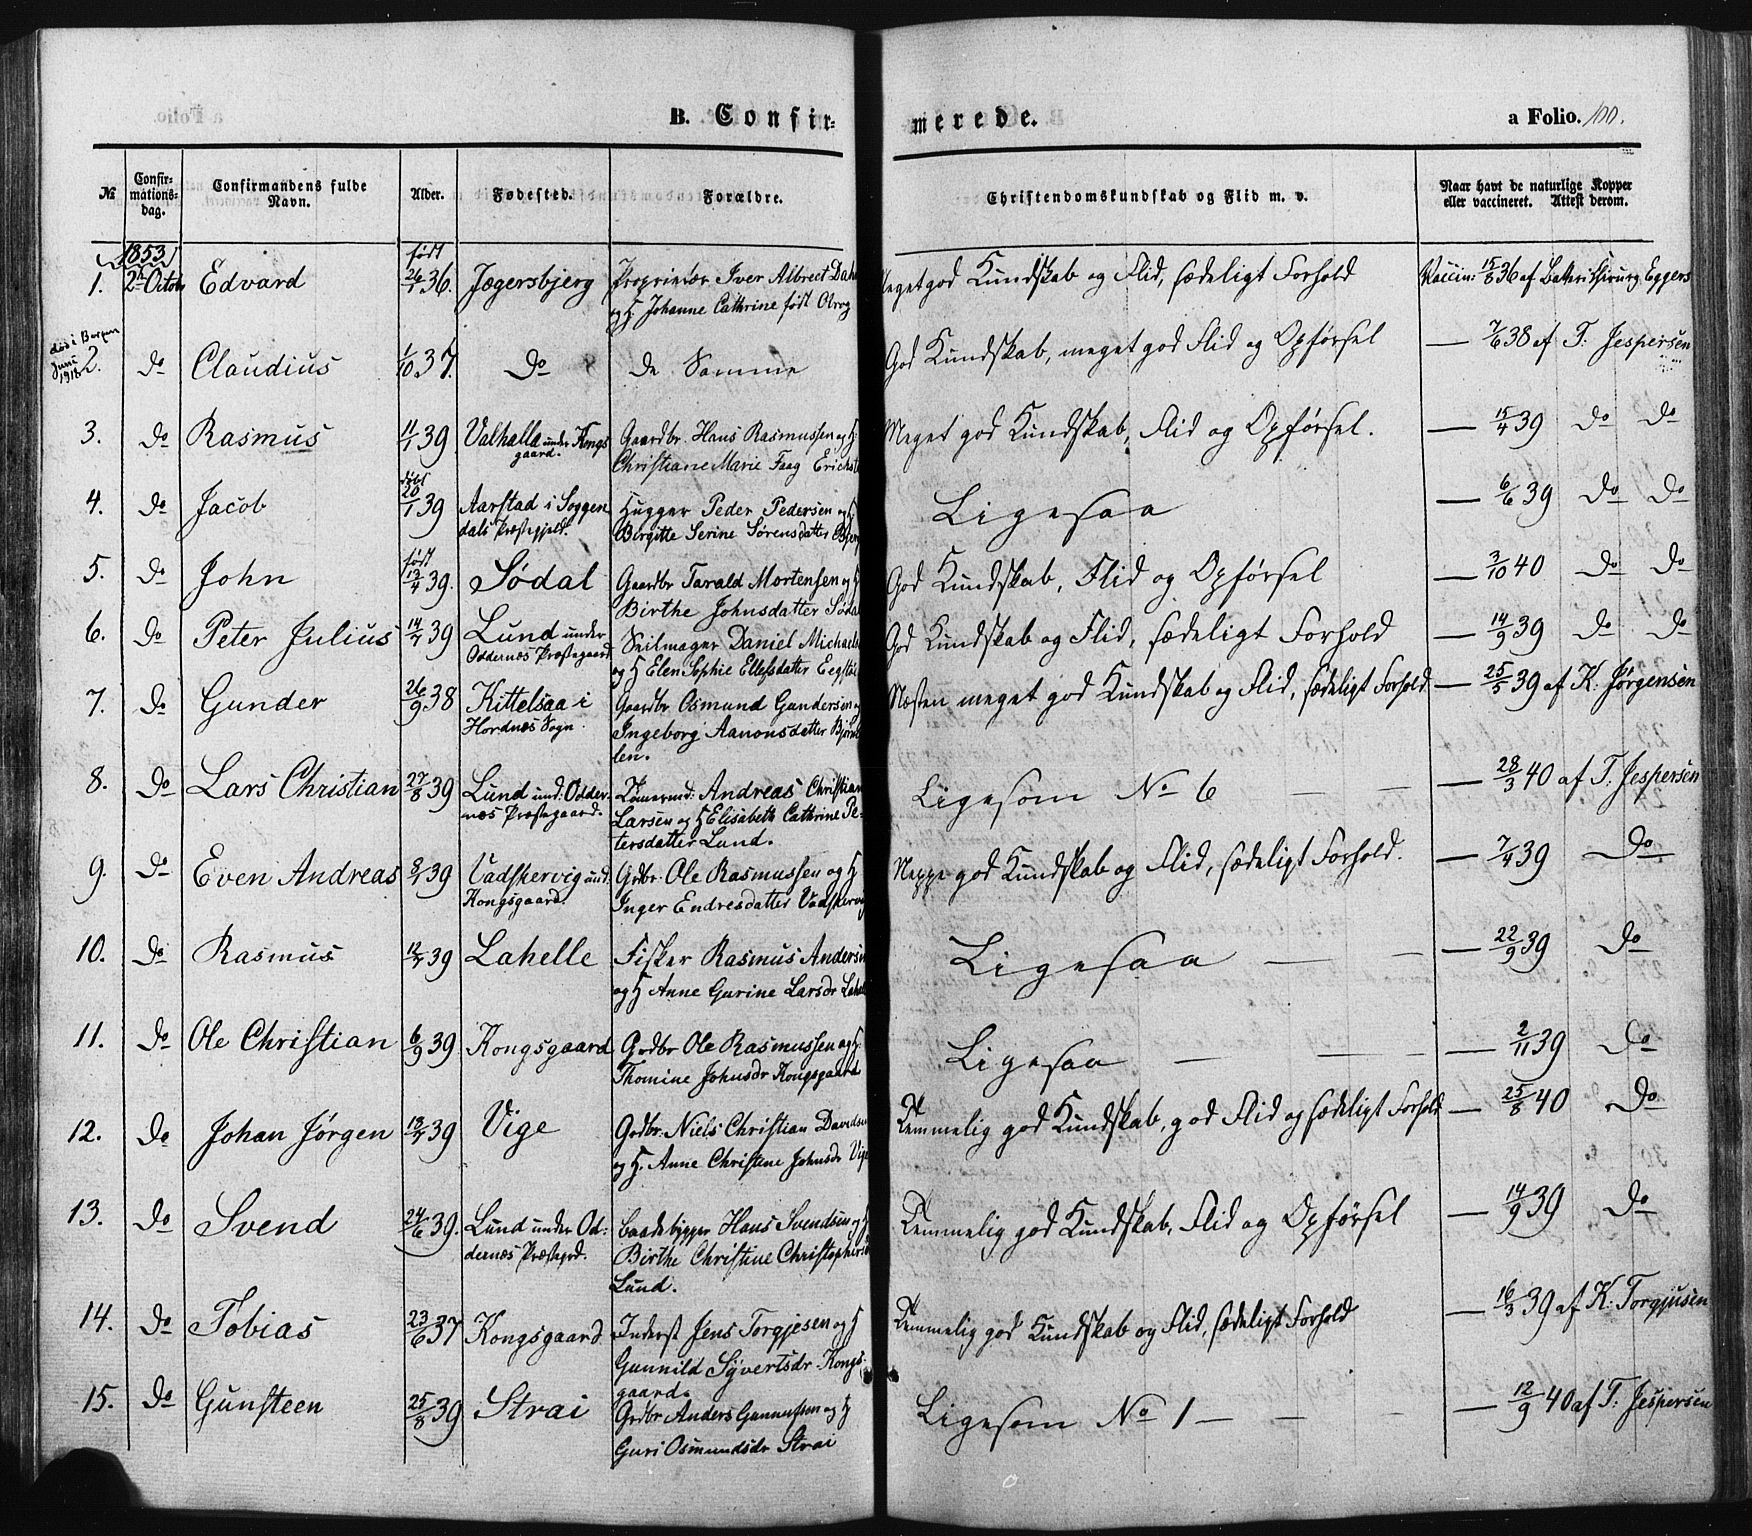 B. Confir-
merede.
a Folio. 100.
№
Confir-
mations-
dag.
Confirmandens fulde
Navn.
Alder.
Fødested.
Forældre.
Christendomskundskab og Flid m. v.
Naar havt de naturlige Kopper
eller vaccineret. Attest derom.
1853
1. 2den Octob. Edvard født 26/1 36. Jægersbjerg Proprietær Iver Albrect Dahl
og H Johanne Cathrine født Olrog
Meget god Kundskab og Flid, sædeligt Forhold Vaccin: 15/8 36 af Batteri Chirurg Eggers
død i Bergen
Juni
1918
2. Do Claudius 1/10 37. Do De Samme God Kundskab, meget god Flid og Opførsel — 7/6 38 af T. Jespersen
3. Do Rasmus 11/1 39 Valhalla under Kongs
gaard.
Gaardbr. Hans Rasmussen og H.
Christiane Marie Faag Erichst
Meget god Kundskab, Flid og Opførsel. — 15/4 39 Do Do
4. Do Jacob døbt 20/1 39 Aarstad i Soggen
dals Præstegjeld.
Hugger Peder Pedersen og H
Birgitte Serine Sørensdatter
Ligesaa — 6/6 39 Do Do
5. Do John født 13/4 39. Sødal Gaardbr Tarald Mortensen og H
Birthe Johnsdatter Sødal
God Kundskab, Flid og Opførsel — 3/10 40 Do Do
6. Do Peter Julius 14/7 39 Lund under
Oddernæs Præstegaard
Seilmager Daniel Michaels
og H Elen Sophie Ellefsdatter
God Kundskab og Flid, sædeligt Forhold — 14/9 39 Do Do
7. Do Gunder 26/9 38 Kittelsaa i
Hordnæs Sogn.
Gaardbr Osmund Gundersen og
Ingeborg Aanonsdatter Bjørn
len.
Næsten meget god Kundskab og Flid, sædeligt Forhold — 25/5 39 af K. Jørgensen
8. Do Lars Christian 27/8 39 Lund und: Odder-
næs Præstegaard.
Tømermd: Andreas Christian
Larsen og H Elisabeth Cathrine Pe-
tersdatter Lund.
Ligesom No 6 — — — 28/3 40 af T. Jespersen
9. Do Even Andreas 8/1 39 Vadskervig und:
Kongsgaard.
Grdbr. Ole Rasmussen og H
Inger Endresdatter Vadskervig
Neppe god Kundskab og Flid, sædeligt Forhold. — 7/4 39 Do
10. Do Rasmus 12/7 39 Lahelle Fisker Rasmus Andersen
og H Anne Gurine Larsdr Lahelle
Ligesaa — — — 22/9 39 Do
11. Do Ole Christian 6/9 39 Kongsgaard Grdbr Ole Rasmussen og H.
Thomine Johnsdr Kongsgaard
Ligesaa — — — 2/11 39 Do
12. Do Johan Jørgen 13/7 39 Vige Grdbr. Niels Christian Davidsen
og H. Anne Christine Johnsdr Vige
Temmelig god Kundskab, god Flid og sædeligt Forhold — 25/8 40 Do
13. Do Svend 24/6 39. Lund under Od:
dernæs Præstegrd.
Baadebygger Hans Svendsen og H
Birthe Christine Christophersd
Lund.
Temmelig god Kundskab, Flid og Opførsel — 14/9 39 Do
14. Do Tobias 23/6 37 Kongsgaard Inderst Jens Torgjesen og H
Gunnild Syvertsdr Kongs-
gaard.
Temmelig god Kundskab og Flid, sædeligt Forhold — 16/3 39 af K. Torgjusen
15. Do Gunsteen 25/8 39 Strai Grdbr Anders Gunnufsen og H
Guri Osmundsdr Strai
Ligesom No 1 — — — 12/9 40 af T. Jespersen